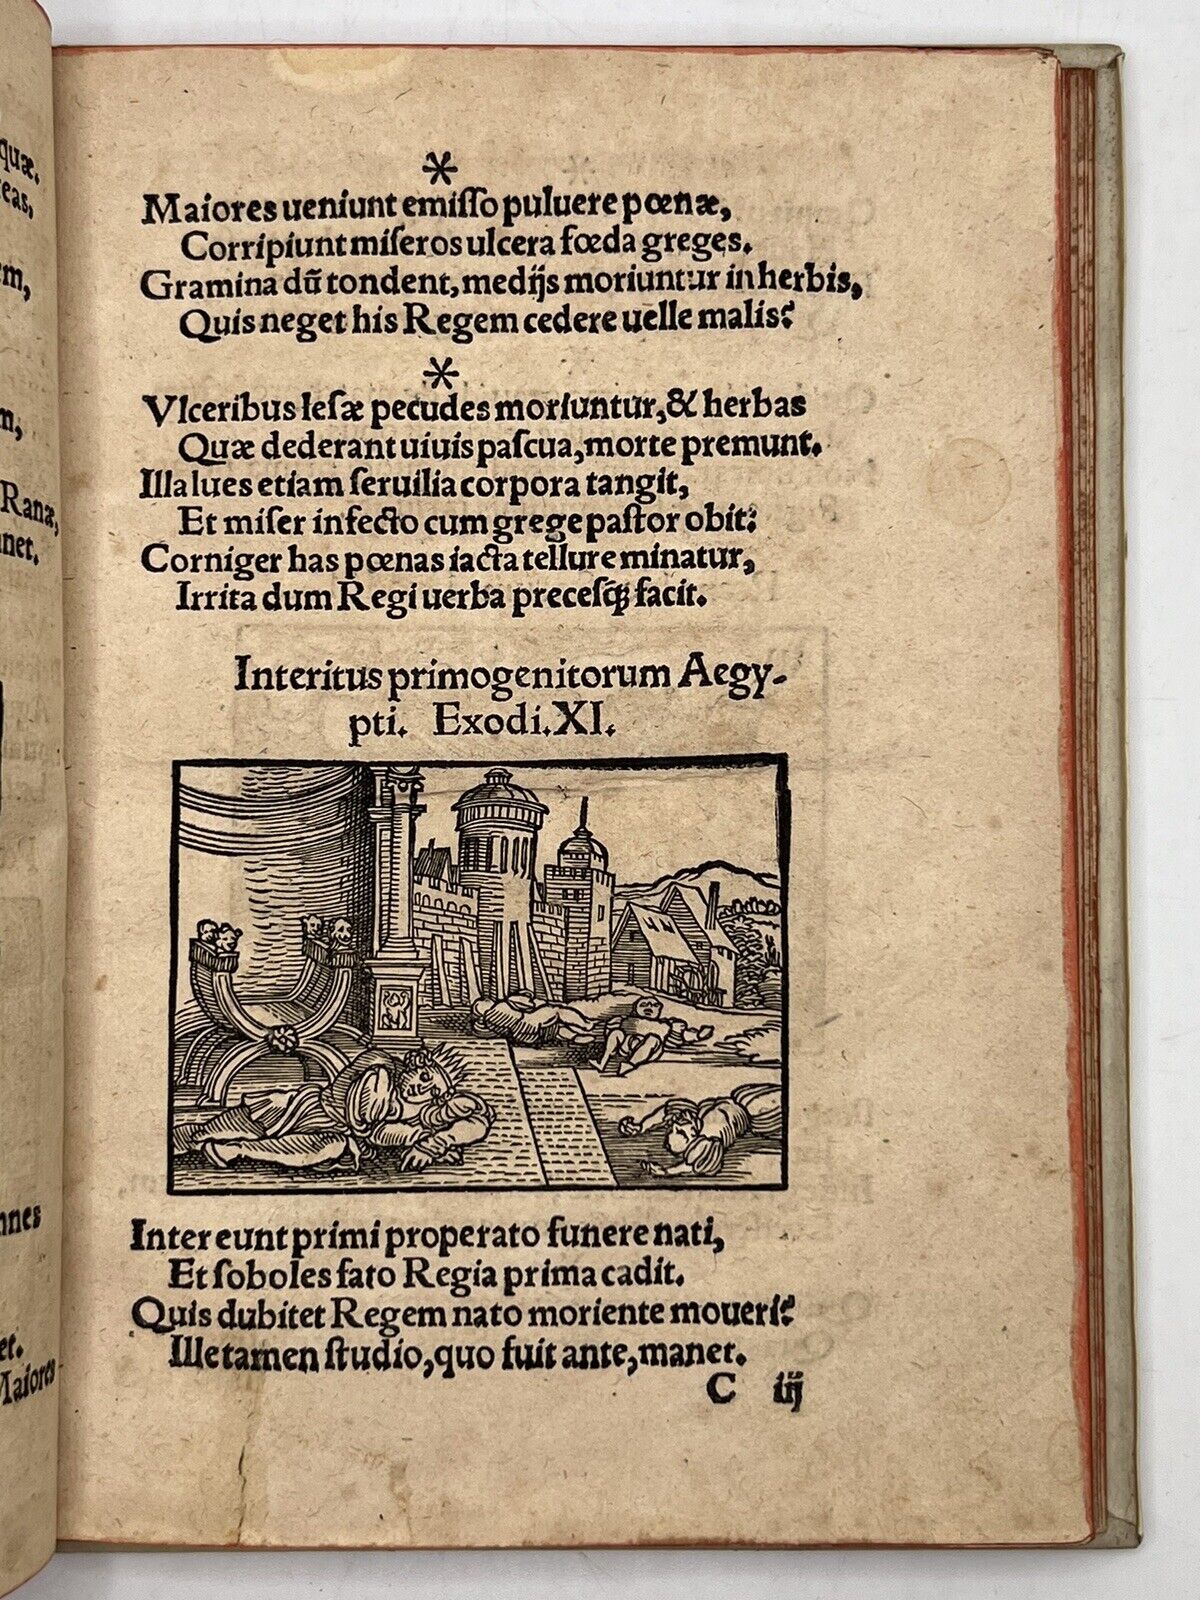 quæ.
eas,
em,
m,
Ranæ,
net.
nnes
et.
Maiores
*
Maiores ueniunt emiſſo puluere pœnæ,
Corripiunt miſeros ulcera fœda greges.
Gramina dũ tondent, medijs moriuntur in herbis,
Quis neget his Regem cedere uelle malis?
*
Vlceribus leſæ pecudes moriuntur, & herbas
Quæ dederant uiuis paſcua, morte premunt.
Illa lues etiam ſeruilia corpora tangit,
Et miſer infecto cum grege paſtor obit:
Corniger has pœnas iacta tellure minatur,
Irrita dum Regi uerba preceſq́; facit.
Interitus primogenitorum Aegy-
pti. Exodi. XI.
Intereunt primi properato funere nati,
Et ſoboles fato Regia prima cadit.
Quis dubitet Regem nato moriente moueri?
Ille tamen ſtudio, quo fuit ante, manet.
C iij